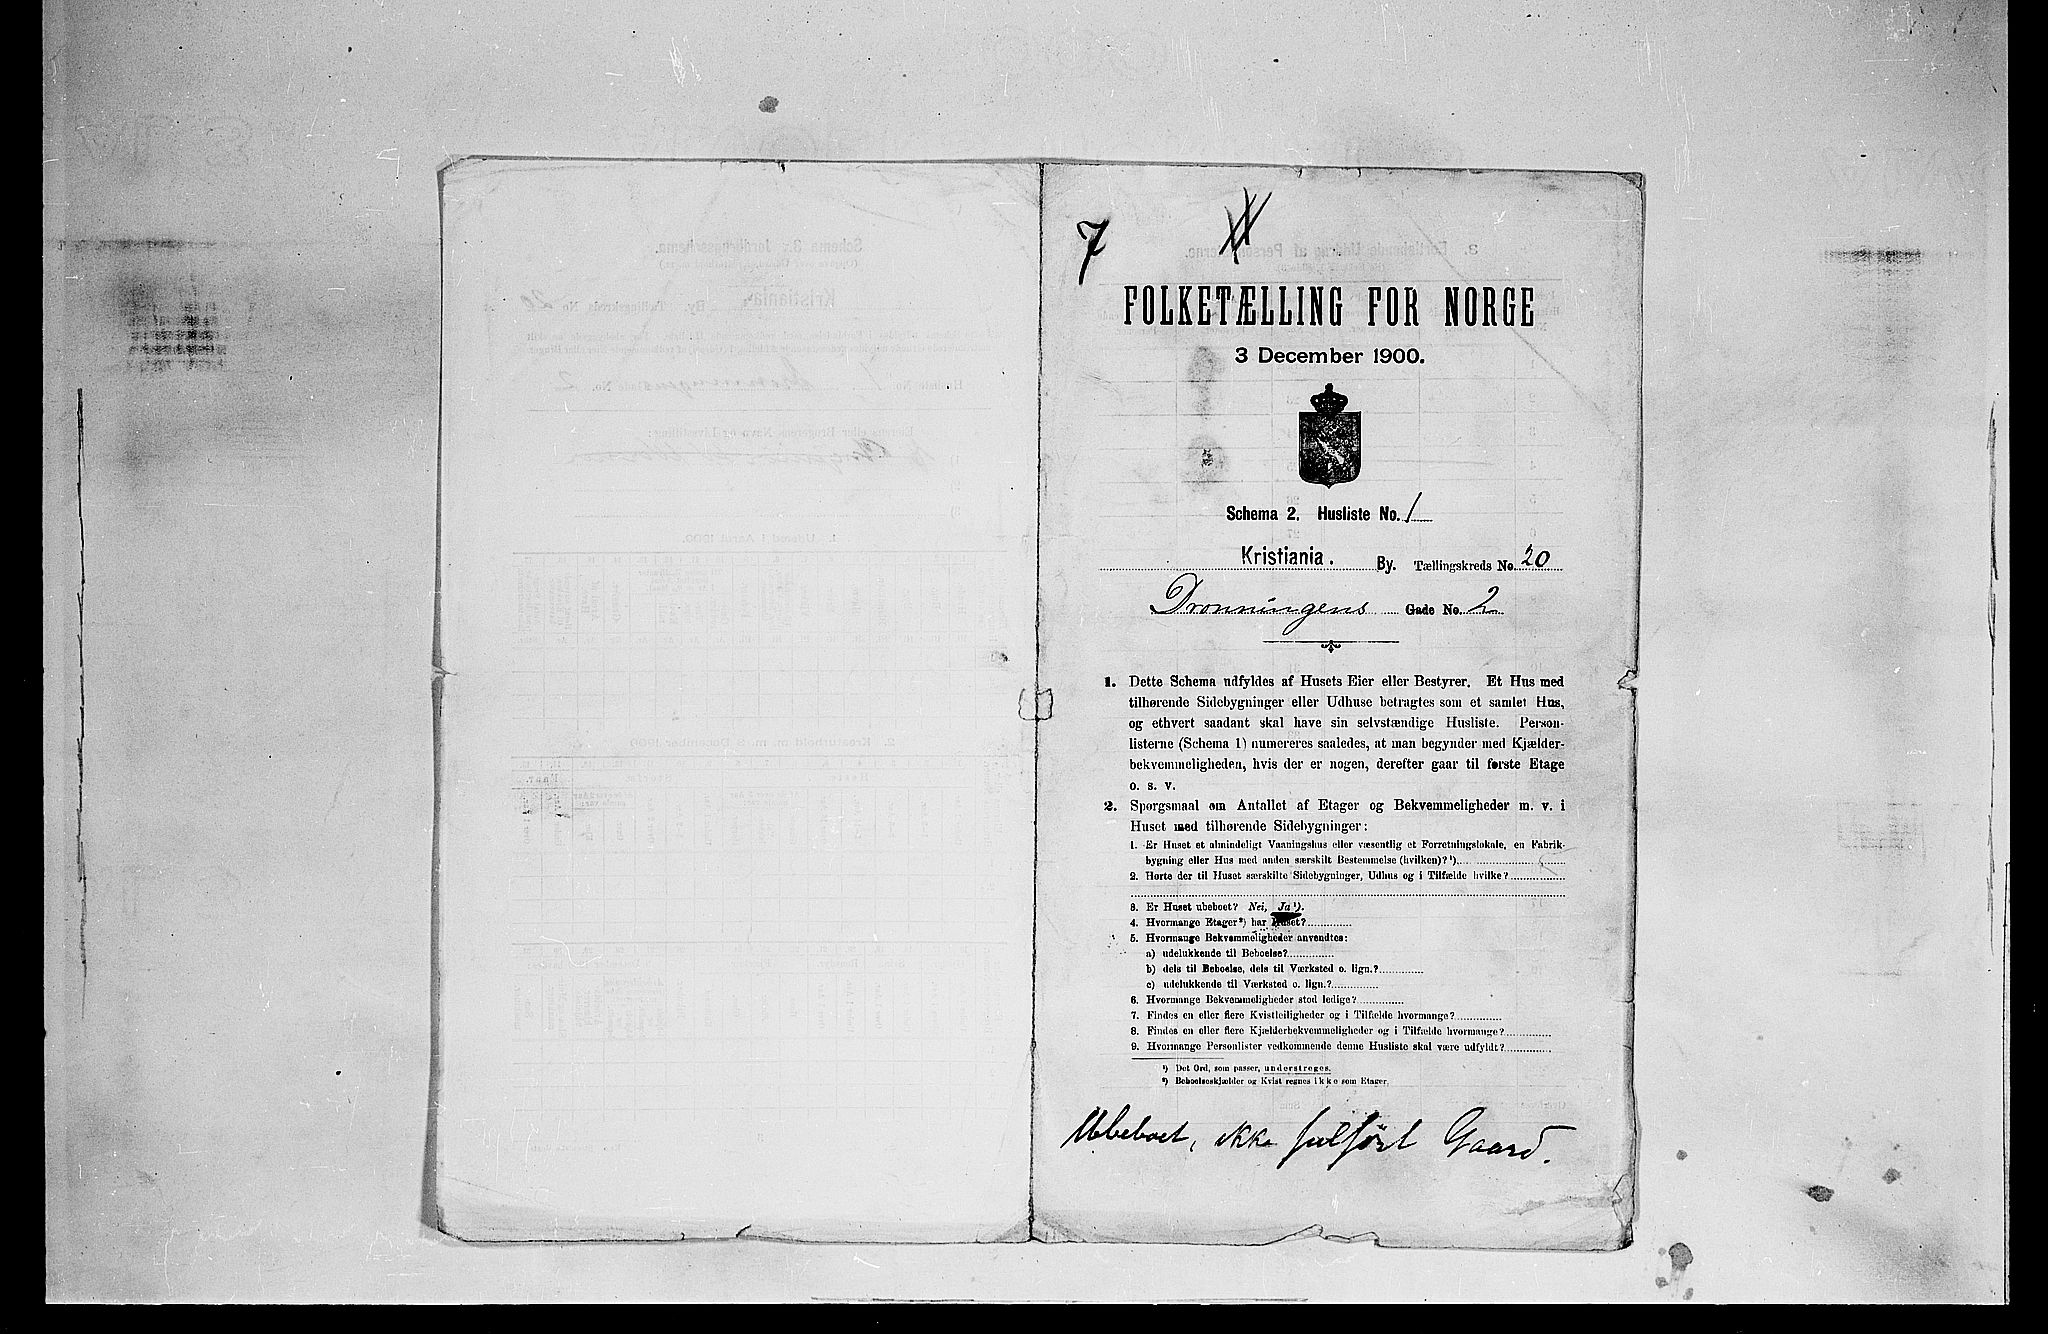 7
FOLKETÆLLING FOR NORGE
3 December 1900.
Schema 2. Husliste No. 1
Kristiania. By. Tællingskreds No. 20
Dronningens Gade No. 2
1. Dette Schema udfyldes af Husets Eier eller Bestyrer. Et Hus med
tilhørende Sidebygninger eller Udhuse betragtes som et samlet Hus,
og ethvert saadant skal have sin selvstændige Husliste. Person-
listerne (Schema 1) numereres saaledes, at man begynder med Kjælder-
bekvemmeligheden, hvis der er nogen, derefter gaar til første Etage
o. s. v.
2. Spørgsmaal om Antallet af Etager og Bekvemmeligheder m. v. i
Huset med tilhørende Sidebygninger:
1. Er Huset et almindeligt Vaaningshus eller væsentlig et Forretningslokale, en Fabrik-
bygning eller Hus med anden særskilt Bestemmelse (hvilken)? ¹)
2. Hørte der til Huset særskilte Sidebygninger, Udhus og i Tilfælde hvilke?
3. Er Huset ubeboet? Nei, Ja ¹).
4. Hvormange Etager ²) har Huset?
5. Hvormange Bekvemmeligheder anvendtes:
a) udelukkende til Beboelse?
b) dels til Beboelse, dels til Værksted o. lign.?
c) udelukkende til Værksted o. lign.?
6. Hvormange Bekvemmeligheder stod ledige?
7. Findes en eller flere Kvistleiligheder og i Tilfælde hvormange?
8. Findes en eller flere Kjælderbekvemmeligheder og i Tilfælde hvormange?
9. Hvormange Personlister vedkommende denne Husliste skal være udfyldt?
¹) Det Ord, som passer, understreges.
²) Beboelseskjælder og Kvist regnes ikke som Etager.
Ubeboet, ikke fulført Gaard.